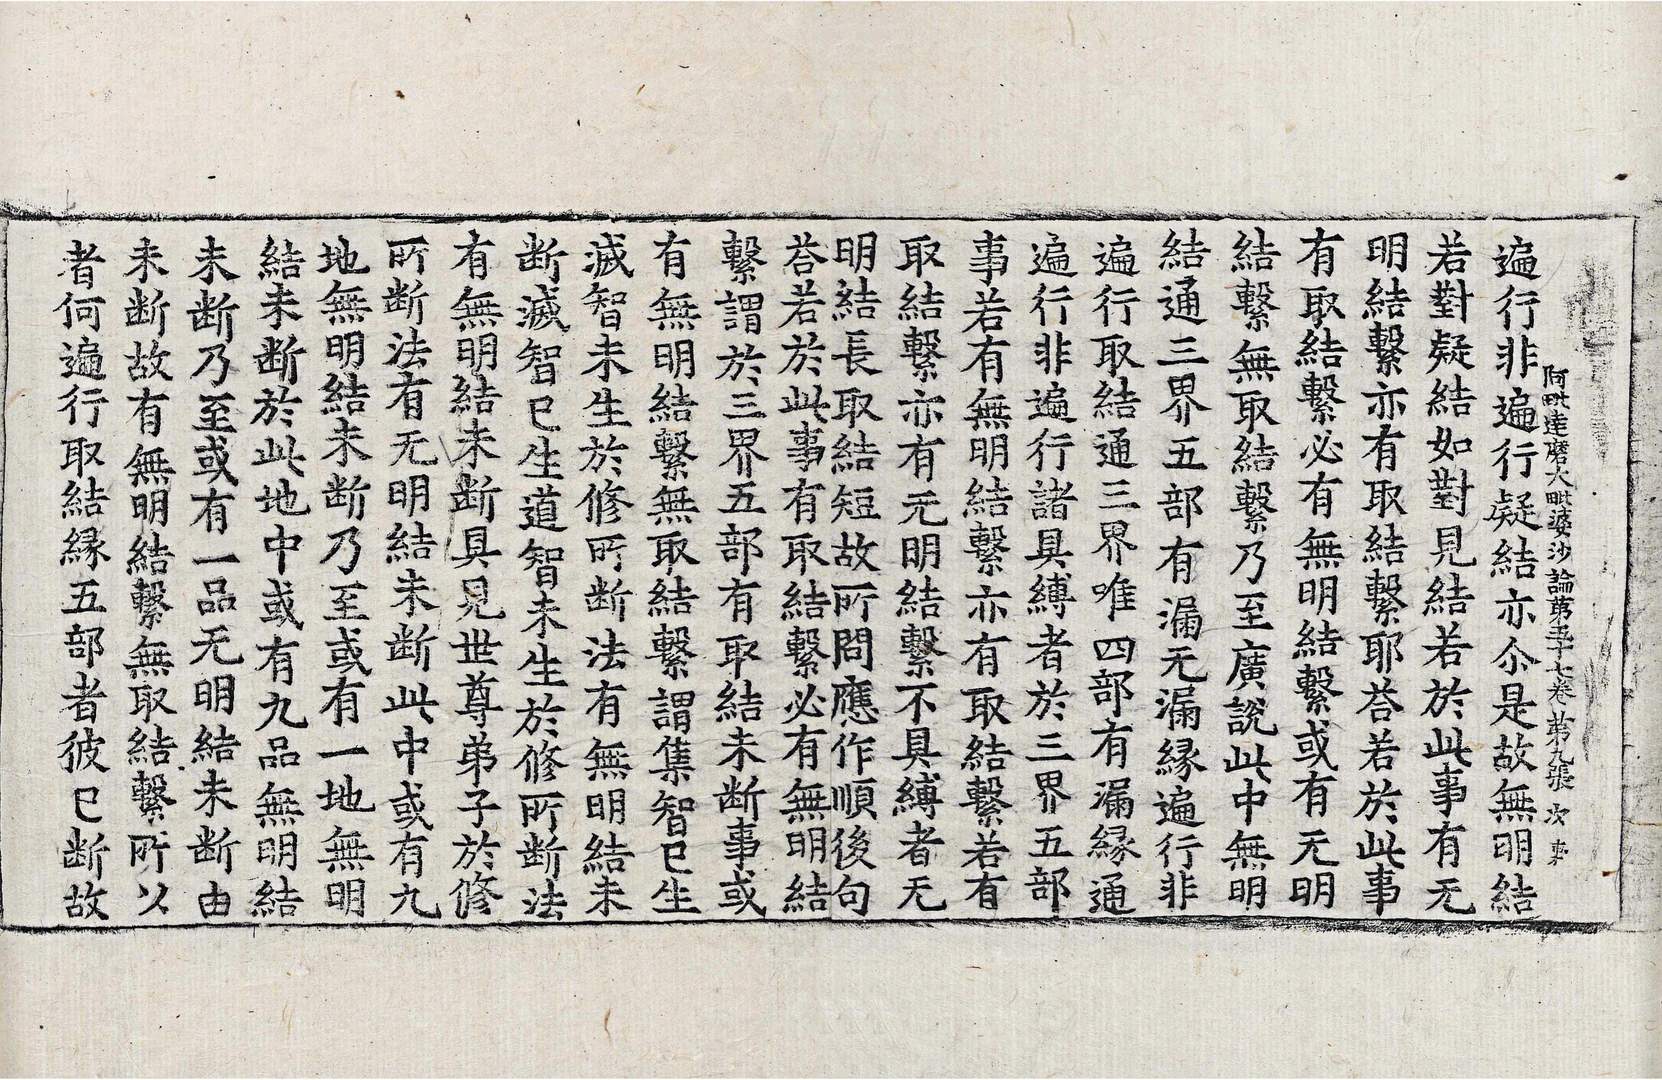 阿毗達磨大毗婆沙論第五十七卷 苐九張 次 事
遍行非遍行疑結亦尒是故無明結
若對疑結如對見結若於此事有无
明結繫亦有取結繫耶荅若於此事
有取結繫必有無明結繫或有无明
結繫無取結繫乃至廣說此中無明
結通三界五部有漏无漏緣遍行非
遍行取結通三界唯四部有漏緣通
遍行非遍行諸具縛者於三界五部
事若有無明結繫亦有取結繫若有
取結繫亦有无明結繫不具縛者无
明結長取結短故所問應作順後句
荅若於此事有取結繫必有無明結
繫謂於三界五部有取結未断事或
有無明結繫無取結繫謂集智已生
滅智未生於修所断法有無明結未
断滅智已生道智未生於修所断法
有無明結未断具見世尊弟子於修
所断法有无明結未断此中或有九
地無明結未断乃至或有一地無明
結未断於此地中或有九品無明結
未断乃至或有一品无明結未断由
未断故有無明結繫無取結繫所以
者何遍行取結緣五部者彼已断故